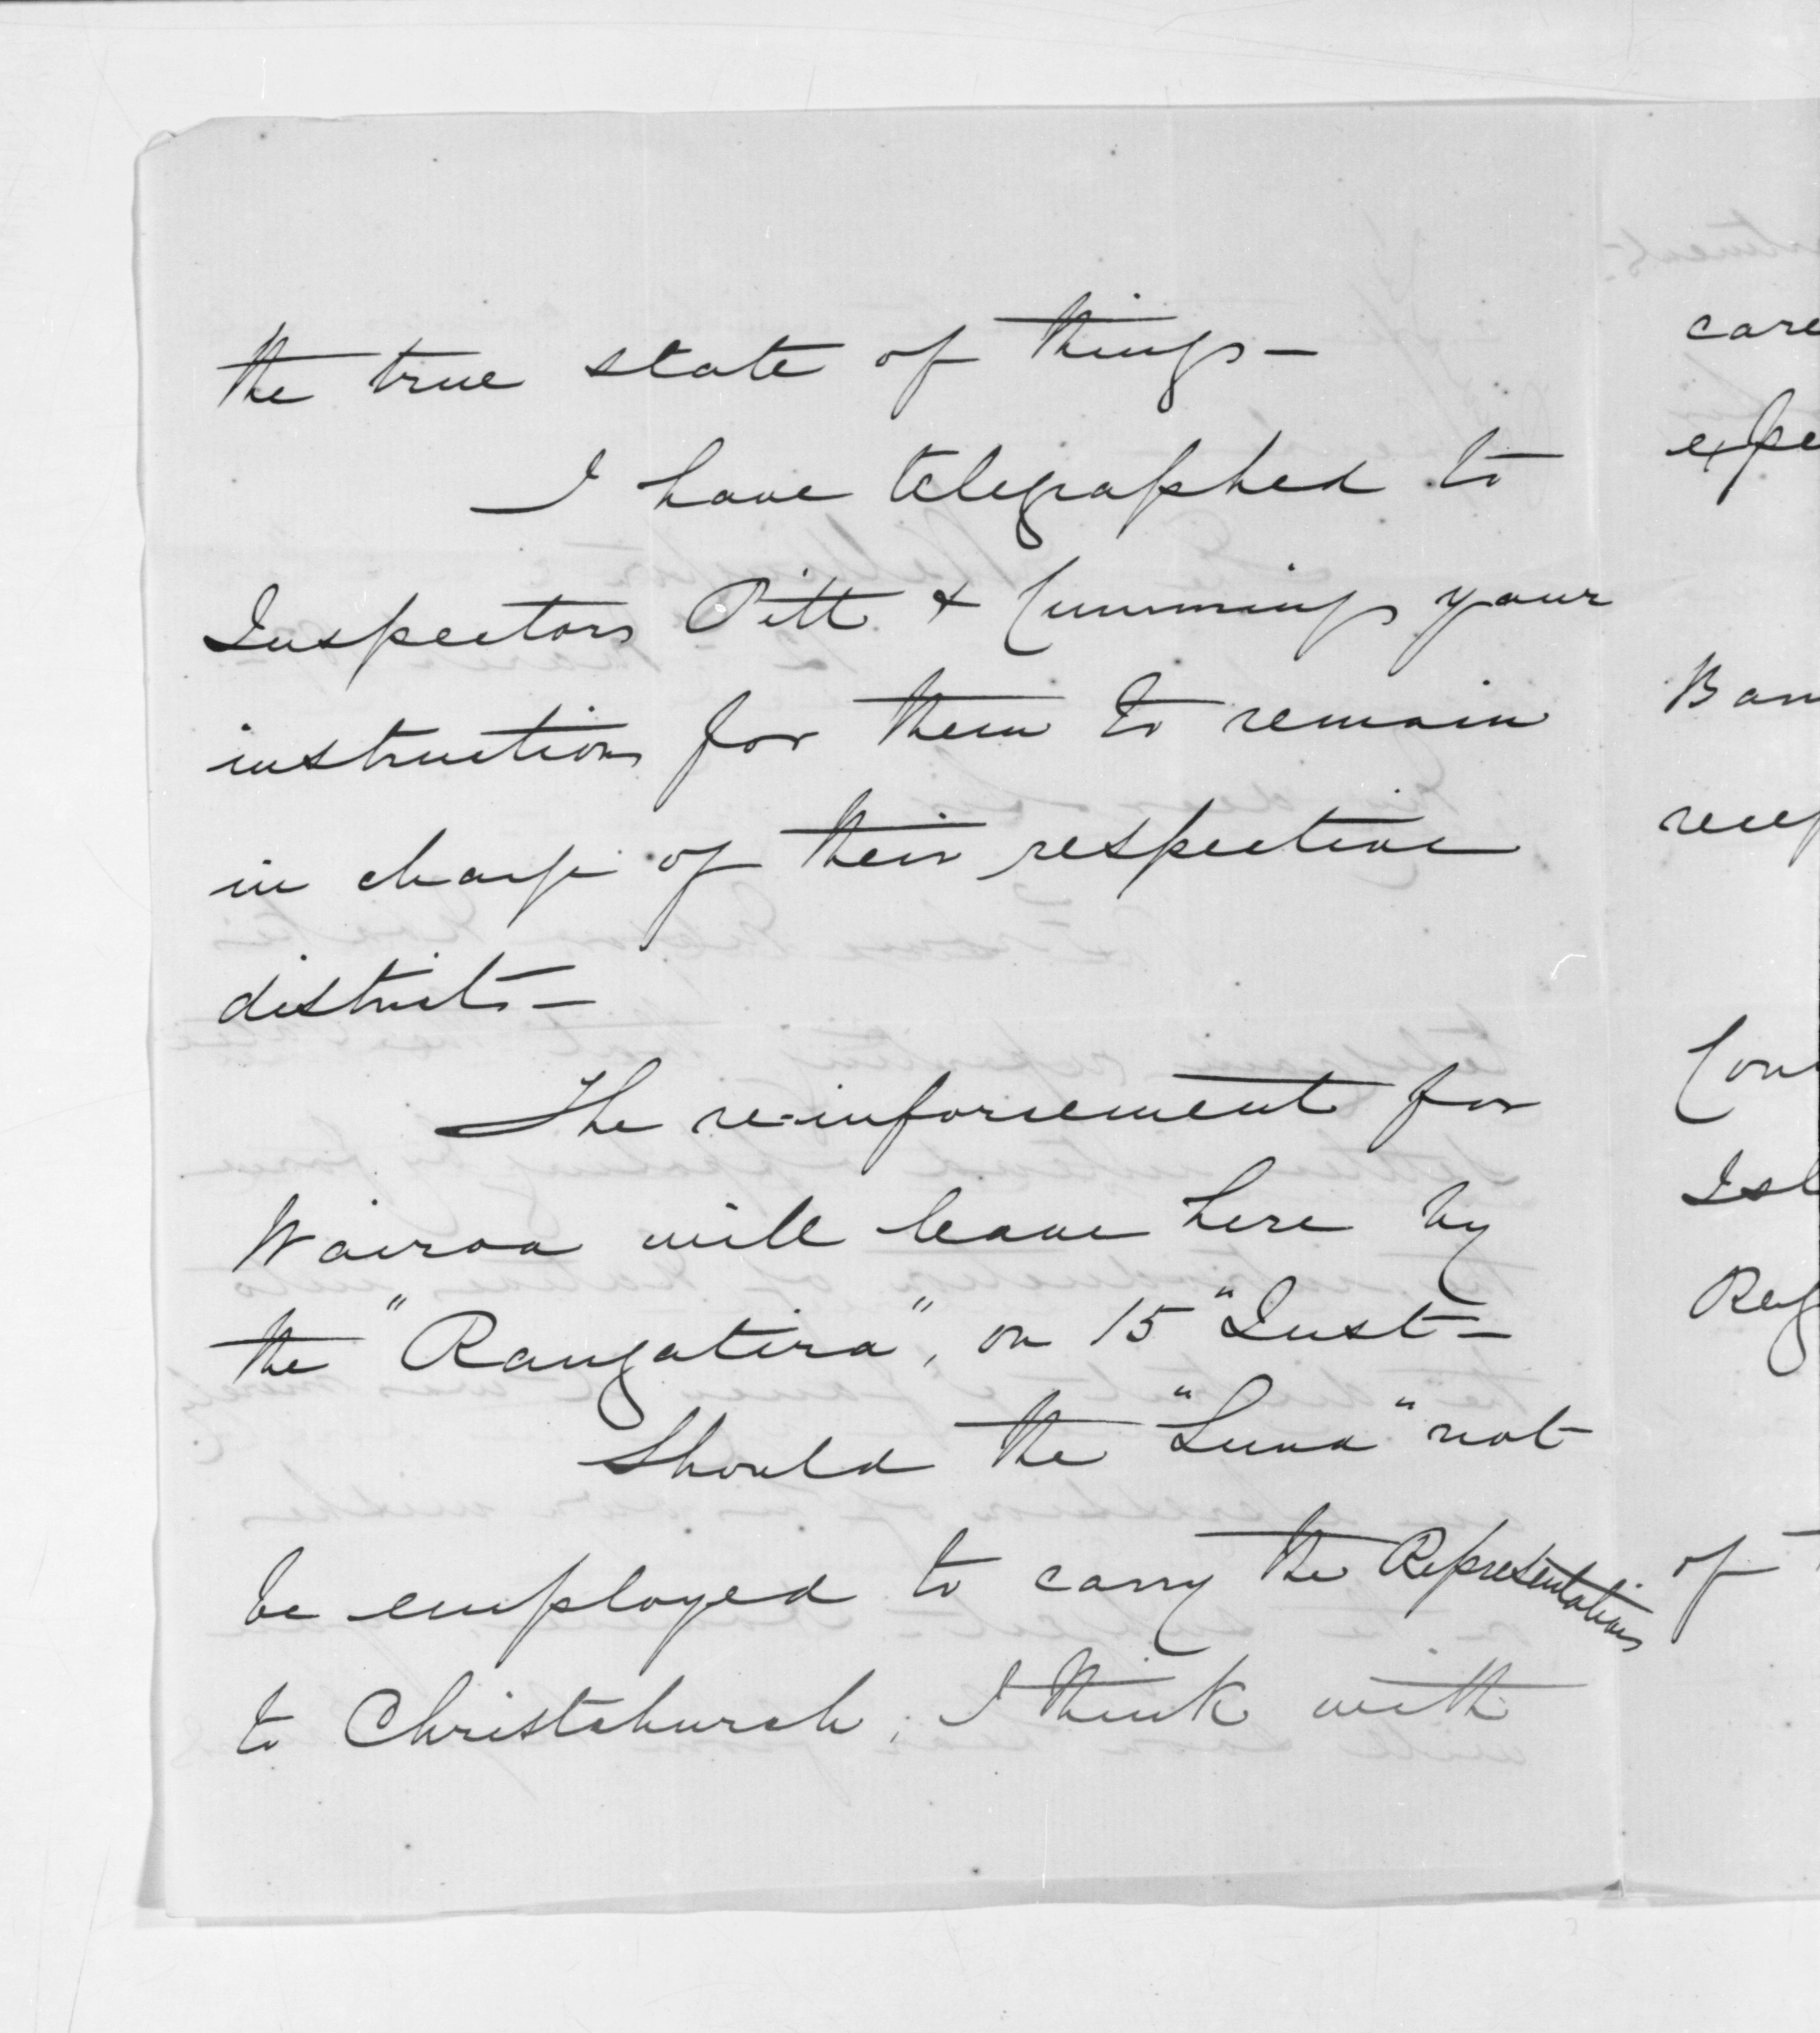 the true state of things—
I have telegraphed to
Inspectors Pitt & Cummings your
instructions for them to remain
in charge of their respective
districts—
The re-inforcement for
Wairoa will leave here by
the "Rangatira", on 15" Inst—
Should the "Luna" not
be employed to carry the Representations
to Christchurch, I think with
care
expe
Ban
recep
Con
Isl
of